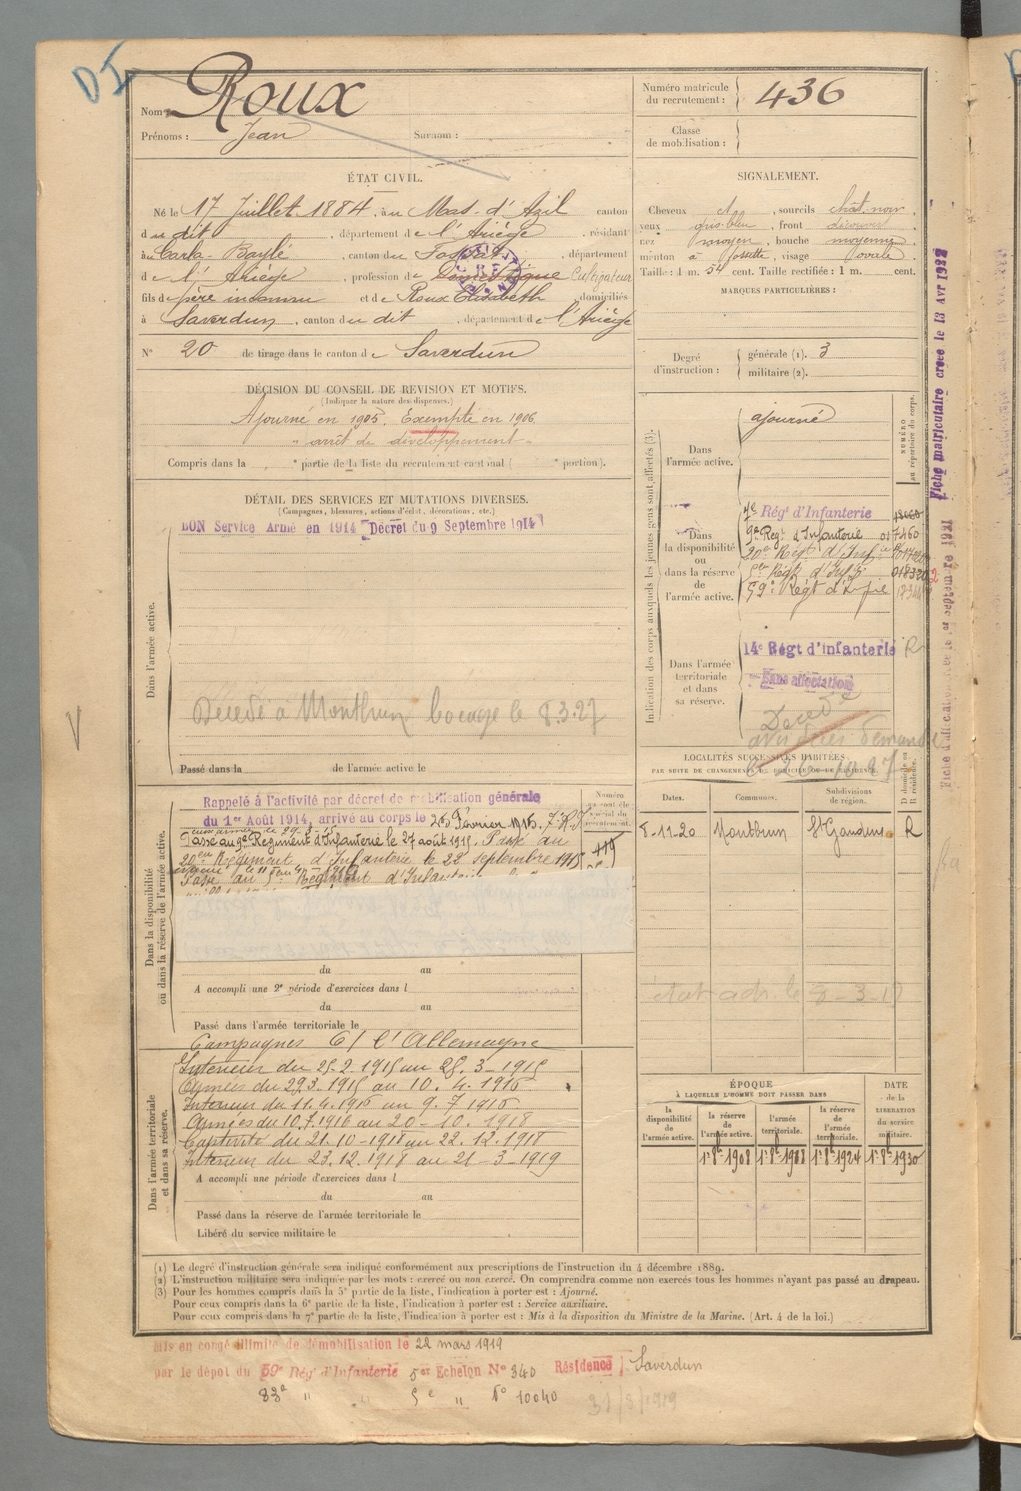 DI
Nom : Roux
Prénoms : Jean Surnom :
Numéro matricule du recrutement : 436
Classe de mobilisation :
ÉTAT CIVIL.
Né le 17 Juillet 1884, au Mas-d'Azil canton
du dit, département de l'Ariège, résidant
à Carla-Bayle, canton du Fossat, département
de l'Ariège, profession de Domestique Cultivateur
fils de père inconnu et de Roux Elisabeth domiciliés
à Saverdun, canton du dit, département de l'Ariège
No 20 de tirage dans le canton de Saverdun
SIGNALEMENT.
Cheveux, sourcils chât-noir,
yeux gris-bleu, front découvert
nez moyen, bouche moyenne
menton à fossette, visage ovale
Taille : 1 m. 54 cent. Taille rectifiée : 1 m. cent.
MARQUES PARTICULIÈRES :
Degré d'instruction : générale (1). 3
militaire (2).
DÉCISION DU CONSEIL DE REVISION ET MOTIFS.
(Indiquer la nature des dispenses.)
Ajourné en 1905. Exempté en 1906
"arrêt de développement"
Compris dans la e partie de la liste du recrutement cantonal ( e portion).
DÉTAIL DES SERVICES ET MUTATIONS DIVERSES.
(Campagnes, blessures, actions d'éclat, décorations, etc.)
BON Service Armé en 1914 Décret du 9 Septembre 1914
Dans l'armée active.
Décédé à Montbrun bocage le 8.3.27
Passé dans la de l'armée active le
Indication des corps auxquels les jeunes gens sont affectés (3).
NUMÉRO au répertoire du corps.
Dans l'armée active. ajourné
Dans la disponibilité ou dans la réserve de l'armée active.
7e Rég' d'Infanterie
9e Regt d'Infanterie 017460
20e Régt d'Infie
5e Régt d'Infie 018320
59e Régt d'Infie
Dans l'armée territoriale et dans sa réserve.
14e Régt d'Infanterie R
Sans affectation
Décédé
Fiche matriculaire créée le 13 Avr 1922
LOCALITÉS SUCCESSIVES HABITÉES
PAR SUITE DE CHANGEMENT DE DOMICILE OU DE RÉSIDENCE.
Dates. Communes. Subdivisions de région. D domicile ou R résidence.
Montbrun St Gaudens R
Dans la disponibilité ou dans la réserve de l'armée active.
Rappelé à l'activité par décret de mobilisation générale
du 1er Août 1914, arrivé au corps le Février 1915.
Passé au 9e Regiment d'Infanterie le 27 août 1915. Passé au
20e Régiment d'Infanterie le 22 septembre 1915
Passé au 5e Régiment d'Infanterie
du au
A accompli une 2e période d'exercices dans l
du au
Passé dans l'armée territoriale le
Dans l'armée territoriale et dans sa réserve.
Campagnes C/ l'Allemagne
Intérieur du 25-2-1915 au 28-3-1915
Armées du 29.3.1915 au 10.4.1916
Interieur du 11.4.1916 au 9.7.1916
Armées du 10.7.1916 au 20-10-1918
Captivité du 21.10-1918 au 22.12.1918
Intérieur du 23.12.1918 au 21-3-1919
A accompli une période d'exercices dans l
du au
Passé dans la réserve de l'armée territoriale le
Libéré du service militaire le
ÉPOQUE
À LAQUELLE L'HOMME DOIT PASSER DANS
DATE de la LIBÉRATION du service militaire.
la disponibilité de l'armée active. la réserve de l'armée active. l'armée territoriale. la réserve de l'armée territoriale.
(1) Le degré d'instruction générale sera indiqué conformément aux prescriptions de l'instruction du 4 décembre 1889.
(2) L'instruction militaire sera indiquée par les mots : exercé ou non exercé. On comprendra comme non exercés tous les hommes n'ayant pas passé au drapeau.
(3) Pour les hommes compris dans la 5e partie de la liste, l'indication à porter est : Ajourné.
Pour ceux compris dans la 6e partie de la liste, l'indication à porter est : Service auxiliaire.
Pour ceux compris dans la 7e partie de la liste, l'indication à porter est : Mis à la disposition du Ministre de la Marine. (Art. 4 de la loi.)
Mis en congé illimité de démobilisation le 22 mars 1919
par le dépôt du 59e Rég' d'Infanterie 5e Echelon No 340 Résidence Saverdun
83e " " 5e " No 10040 31/3/1919